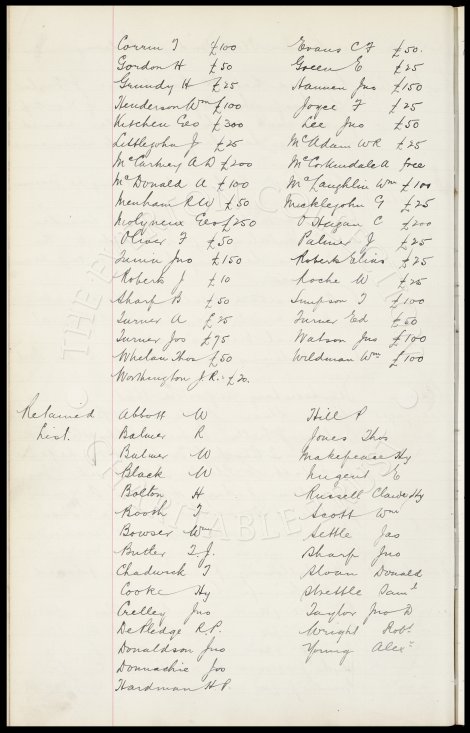 Corrin T £100 Evans C F £50.
Gordon H £50 Green E £25
Grundy H £25 Hannen Jno £150
Henderson Wm £100 Joyce F £25
Kitchen Geo £300 Lee Jno £50
Littlejohn J £25 McAdam W R £25
McCartney A D £200 McCorkindale A free
McDonald A £100 McLaughlin Wm £100
Menham R W £50 Micklejohn G £25
Molyneux Geo £250 O'Hagan C £200
Oliver F £50 Palmer J £25
Jno £150 Roberts Elias £25
Roberts J £10 Roche W £25
Sharp B £50 Simpson T £100
Turner A £25 Turner Ed £50
Turner Jos £75 Watson Jno £100
Whelan Thos £50 Wildman Wm £100
Worthington J. R. £20.
Retained Abbott W Hill P
List. Balmer R Jones Thos
Balmer W Makepeace Hy
Black W Nugent E
Bolton H Russell Claude Hy
Booth T Scott Wm
Bowser Wm Settle Jas
Butler T. J. Sharp Jno
Chadwick T Sloan Donald
Cooke Hy Strettle Saml
Crelley Jno Taylor Jno D
De Pledge R. P. Wright Robt
Donaldson Jno Young Alexr
Donnachie Jos
Hardman H P.
THE EVERTON
ABLE